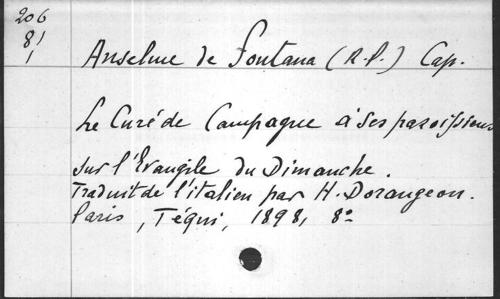 206
81
1
Anselme de Fontana (R.P.) Cap.
Le Curé de Campagne à ses paroissiens
sur l'Evangile du Dimanche.
Traduit de l'italien par H. Dorangeon.
Paris, Téqui, 1898, 8º